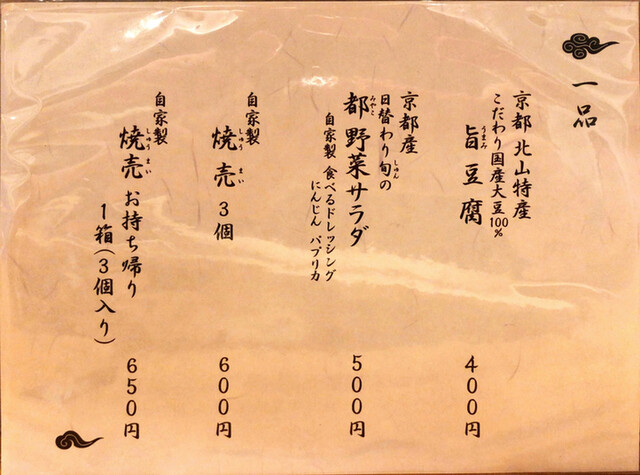 一品
京都 北山特産
こだわり国産大豆100%
旨豆腐
うまみ
400円
京都産
日替わり旬の
しゅん
都野菜サラダ
みやこ
自家製 食べるドレッシング
にんじん パプリカ
500円
自家製
焼売 3個
しゅう まい
600円
自家製
焼売 お持ち帰り
しゅう まい
1箱(3個入り)
650円